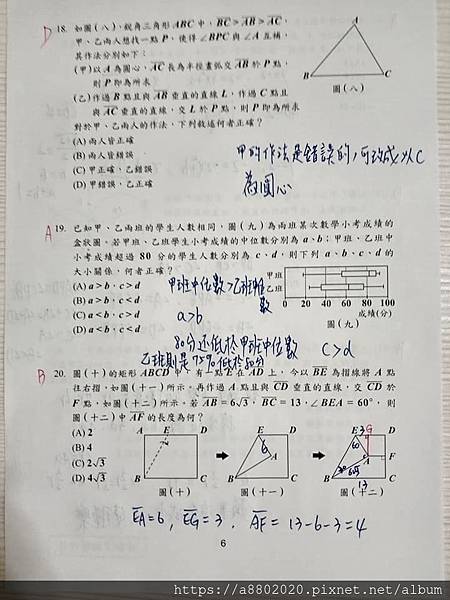 D 18. 如圖(八),銳角三角形 ABC 中,BC > AB > AC,
甲、乙兩人想找一點 P,使得 ∠BPC 與 ∠A 互補,
其作法分別如下:
(甲)以 A 為圓心,AC 長為半徑畫弧交 AB 於 P 點,
則 P 即為所求
(乙)作過 B 點且與 AB 垂直的直線 L,作過 C 點且
與 AC 垂直的直線,交 L 於 P 點,則 P 即為所求
對於甲、乙兩人的作法,下列敘述何者正確?
(A) 兩人皆正確
(B) 兩人皆錯誤
(C) 甲正確,乙錯誤
(D) 甲錯誤,乙正確
A
B
C
圖(八)
甲的作法是錯誤的,可改成以C
為圓心
A 19. 已知甲、乙兩班的學生人數相同,圖(九)為兩班某次數學小考成績的
盒狀圖。若甲班、乙班學生小考成績的中位數分別為 a、b;甲班、乙班中
小考成績超過 80 分的學生人數分別為 c、d,則下列 a、b、c、d 的
大小關係,何者正確?
(A) a > b,c > d
(B) a > b,c < d
(C) a < b,c > d
(D) a < b,c < d
甲班
乙班
0 20 40 60 80 100
成績(分)
圖(九)
甲班中位數>乙班中位數
a>b
80分還低於甲班中位數
乙班則是75%低於80分
c>d
B 20. 圖(十)的矩形 ABCD 中,有一點 E 在 AD 上,今以 BE 為摺線將 A 點
往右摺,如圖(十一)所示。再作過 A 點且與 CD 垂直的直線,交 CD 於
F 點,如圖(十二)所示。若 AB = 6√3,BC = 13,∠BEA = 60°,則
圖(十二)中 AF 的長度為何?
(A) 2
(B) 4
(C) 2√3
(D) 4√3
A E D
B C
圖(十)
E D
A
B C
圖(十一)
E 3 G D
60
A F
6√3
B 13 C
圖(十二)
EA=6, EG=3, AF= 13-6-3=4
6
https://a8802020.pixnet.net/album